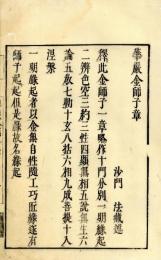 華嚴金師子章
沙門 法藏述
釋此金師子一章略作十門分別一明緣起
二辨色空三約三性四顯無相五說無生六
論五教七勒十玄八括六相九成菩提十入
涅槃
一明緣起者以金無自性隨工巧匠緣遂有
師子起起但是緣故名緣起